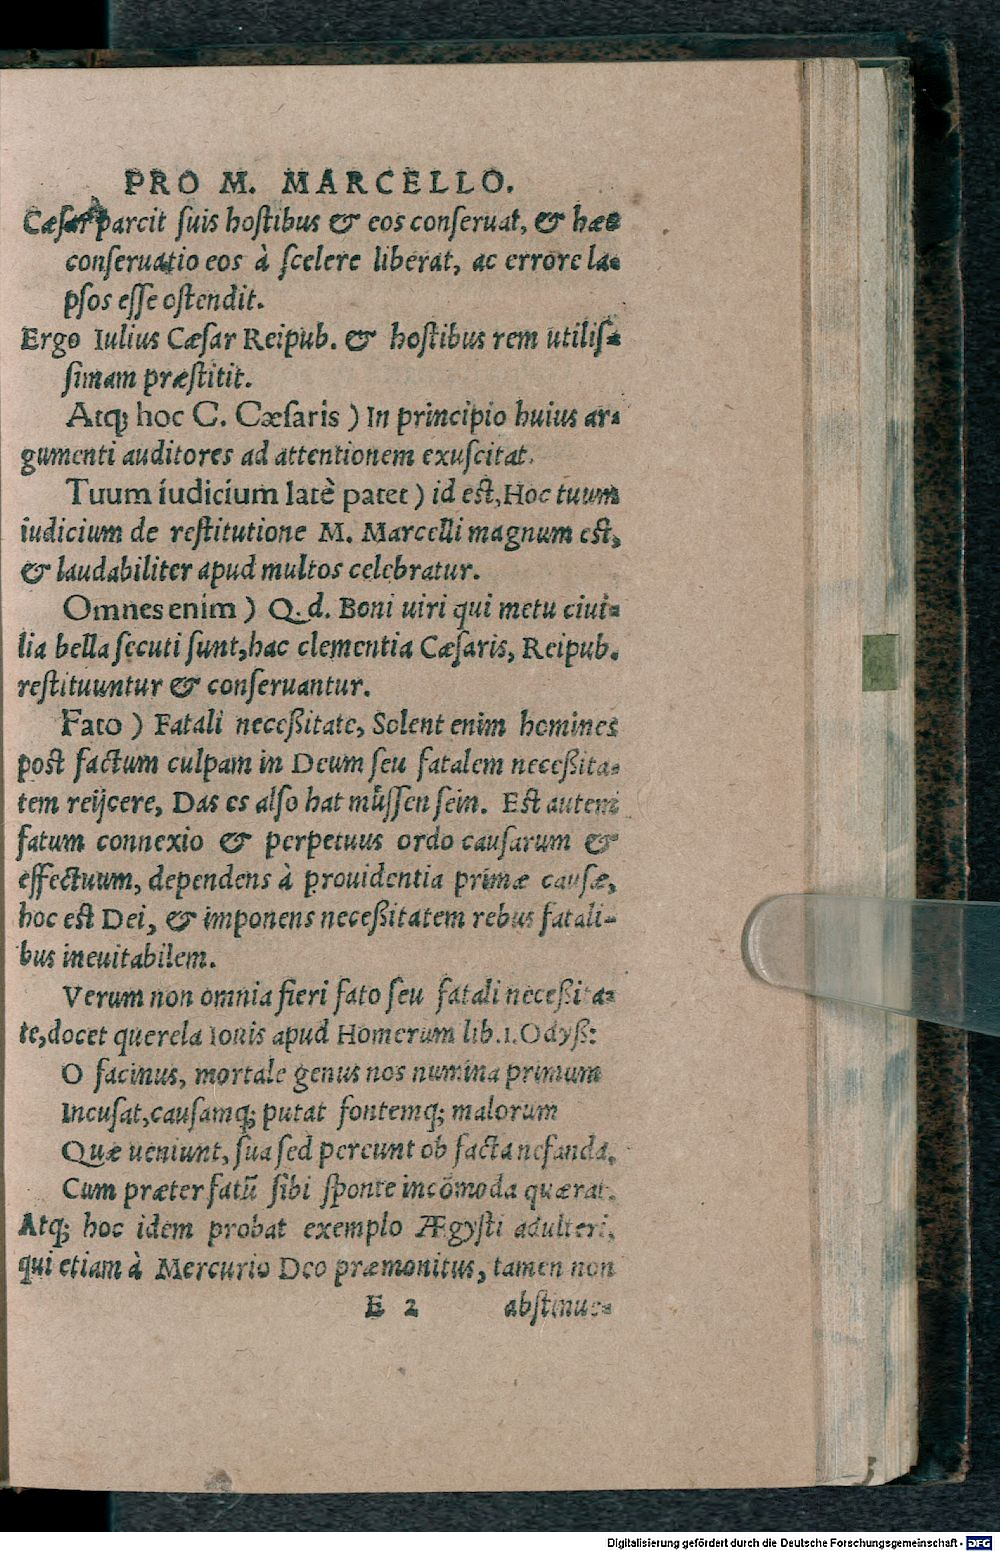 PRO M. MARCELLO.
Cæsar parcit suis hostibus & eos conseruat, & hæc
conseruatio eos à scelere liberat, ac errore la-
psos esse ostendit.
Ergo Iulius Cæsar Reipub. & hostibus rem utilis-
simam præstitit.
Atq; hoc C. Cæsaris ) In principio huius ar-
gumenti auditores ad attentionem exuscitat.
Tuum iudicium latè patet ) id est, Hoc tuum
iudicium de restitutione M. Marcelli magnum est,
& laudabiliter apud multos celebratur.
Omnes enim ) Q. d. Boni uiri qui metu ciui-
lia bella secuti sunt, hac clementia Cæsaris, Reipub.
restituuntur & conseruantur.
Fato ) Fatali neceßitate, Solent enim homines
post factum culpam in Deum seu fatalem neceßita-
tem reijcere, Das es also hat muͤssen sein. Est autem
fatum connexio & perpetuus ordo causarum &
effectuum, dependens à prouidentia primæ causæ,
hoc est Dei, & imponens neceßitatem rebus fatali-
bus ineuitabilem.
Verum non omnia fieri fato seu fatali neceßita-
te, docet querela Iouis apud Homerum lib.1.Odyß:
O facinus, mortale genus nos numina primum
Incusat, causamq; putat fontemq; malorum
Quæ ueniunt, sua sed pereunt ob facta nefanda,
Cum præter fatū sibi sponte incōmoda quærat.
Atq; hoc idem probat exemplo Ægysti adulteri,
qui etiam à Mercurio Deo præmonitus, tamen non
E 2 abstinue-
Digitalisierung gefördert durch die Deutsche Forschungsgemeinschaft - DFG